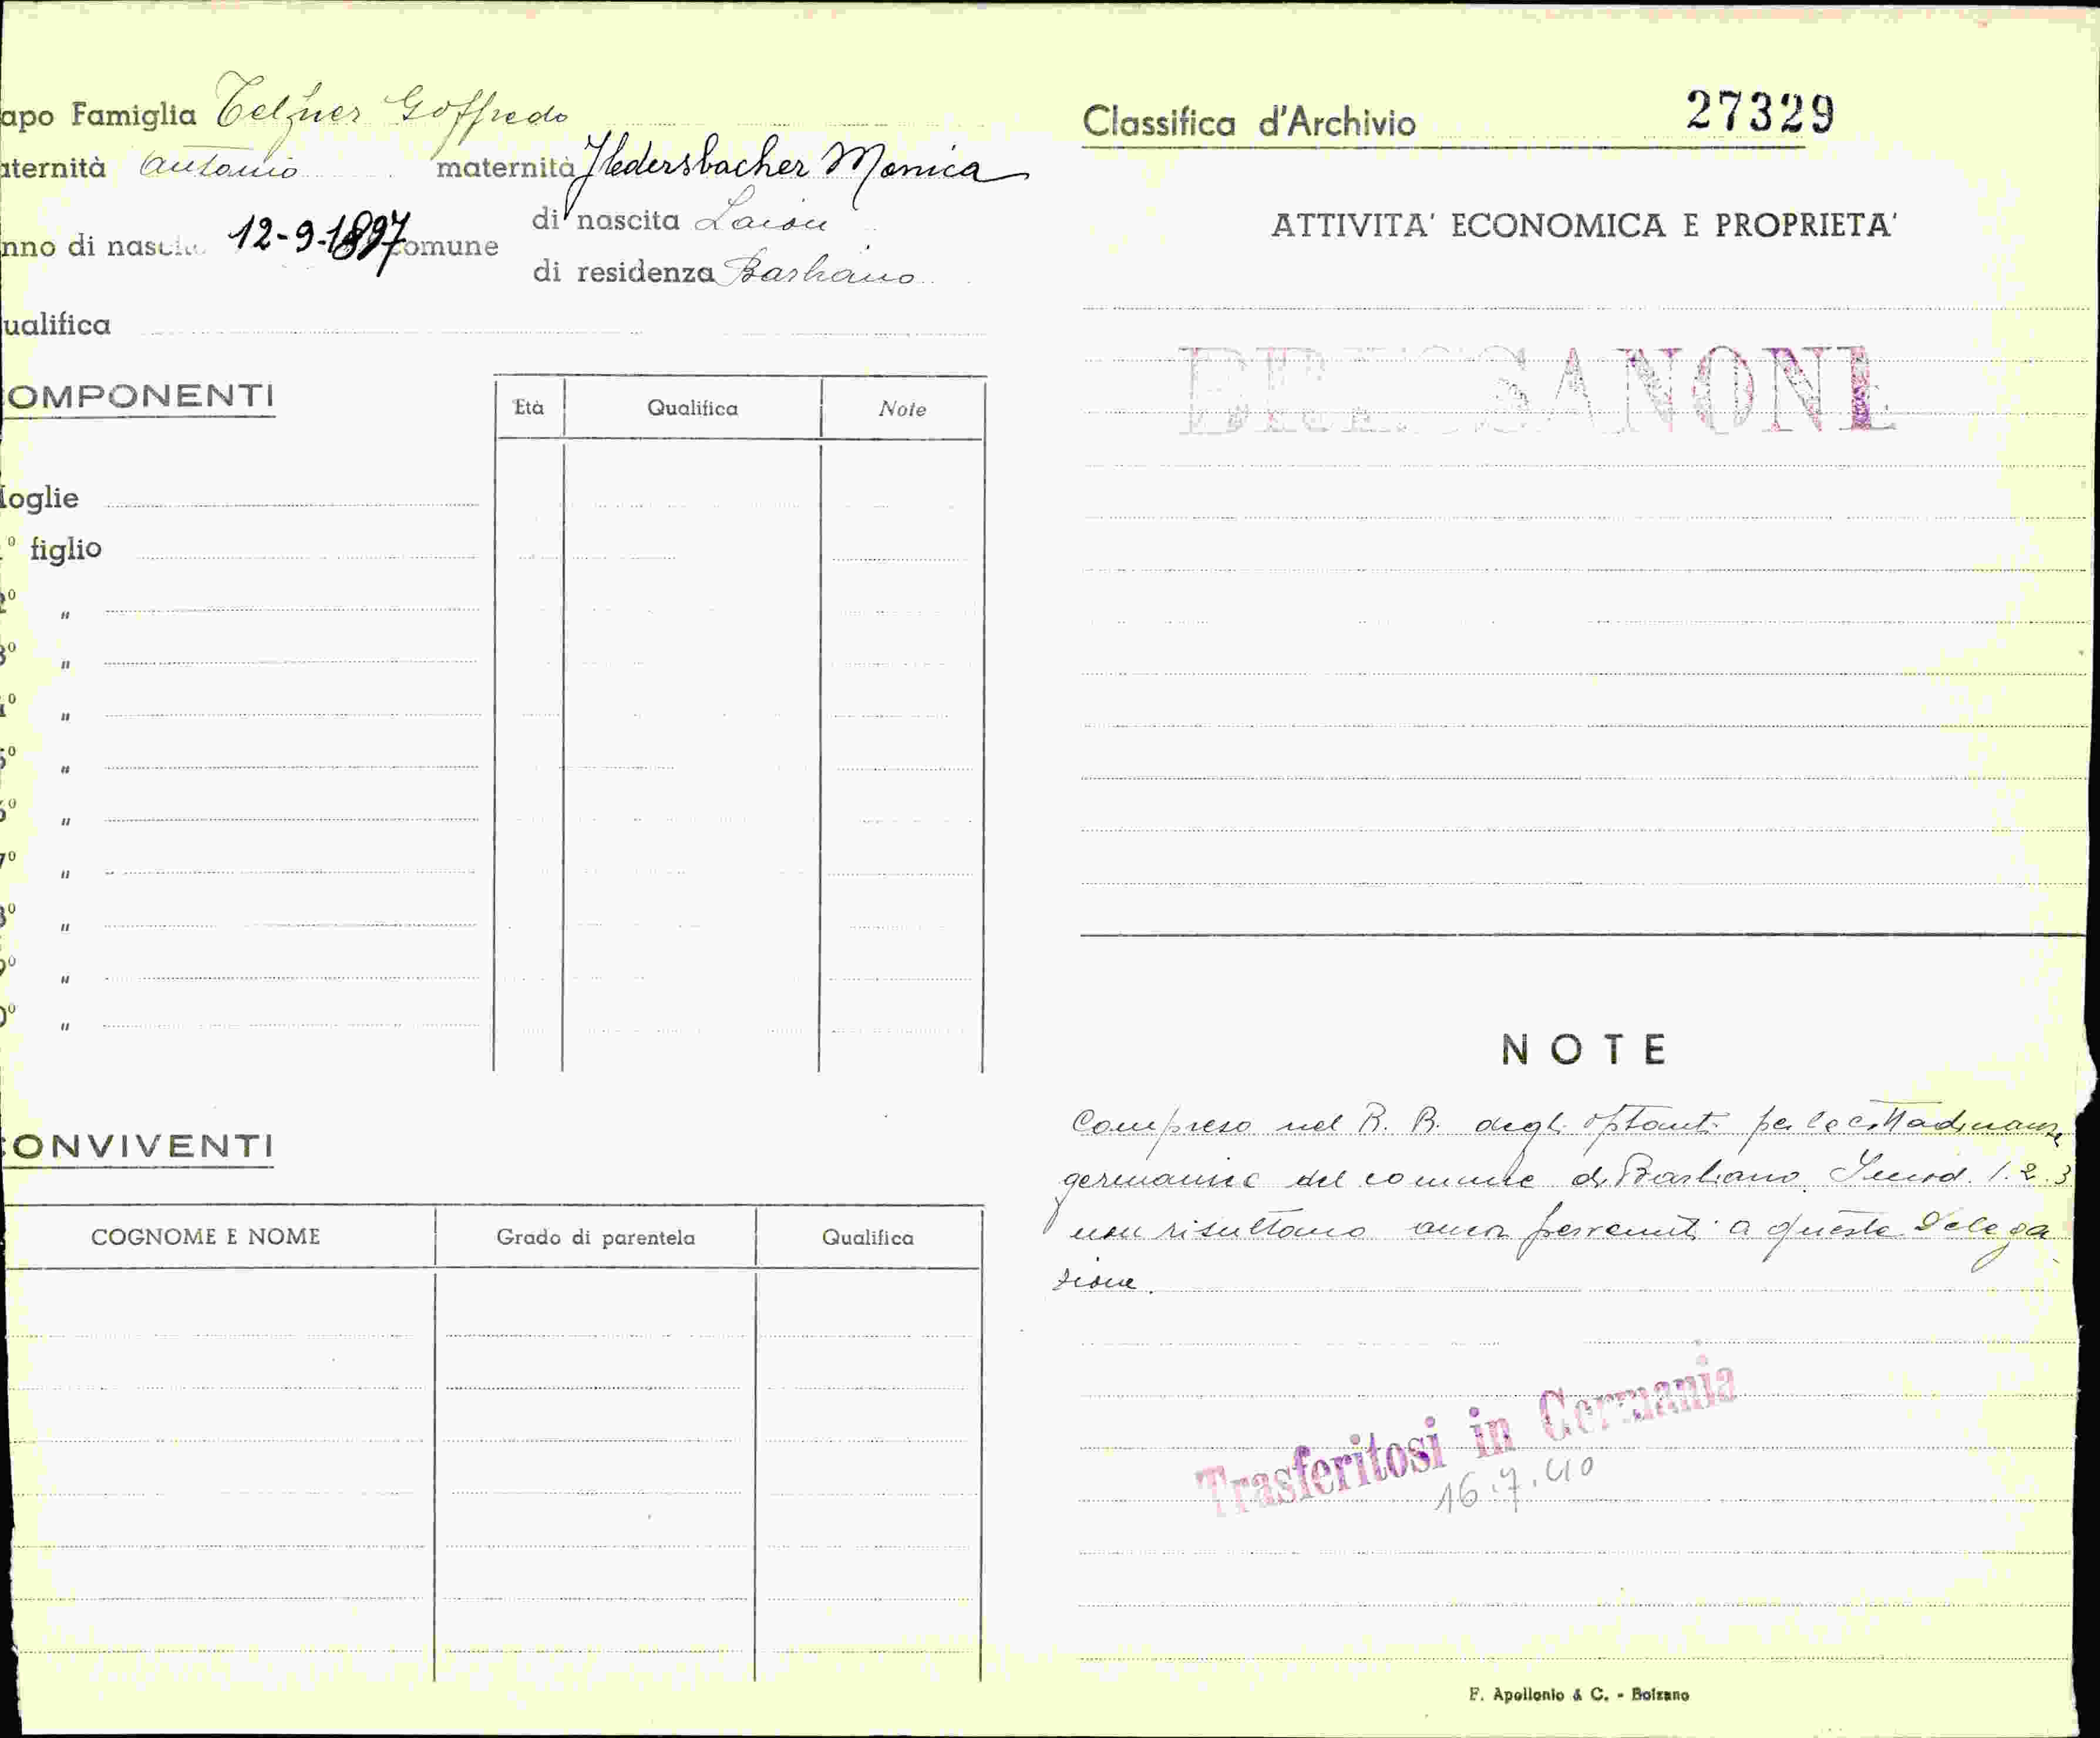 apo Famiglia Telzner Goffredo
aternità Antonio maternità Hedersbacher Monica
nno di nascita 12-9-1897 comune di nascita Laion
di residenza Barbiano
ualifica
OMPONENTI
Età Qualifica Note
oglie
° figlio
2° "
3° "
4° "
5° "
6° "
7° "
8° "
9° "
0° "
ONVIVENTI
COGNOME E NOME Grado di parentela Qualifica
Classifica d'Archivio 27329
ATTIVITA' ECONOMICA E PROPRIETA'
BRESSANONE
NOTE
Compreso nel R. R. degli optanti per la cittadinanza
germanica del comune di Barbiano. I mod. 1.2.3
non risultano ancor pervenuti a questa Delega
zione.
Trasferitosi in Germania
16.7.40
F. Apollonio & C. - Bolzano